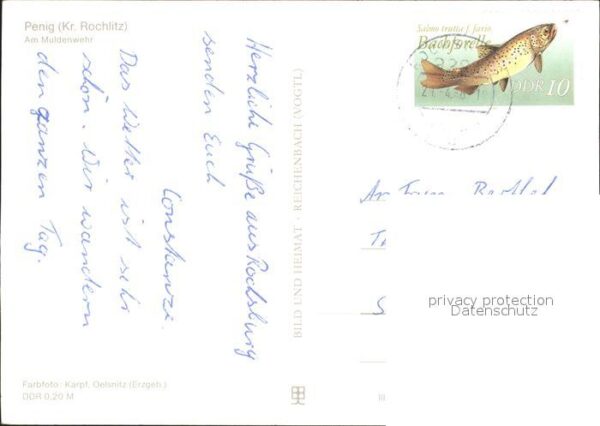 Penig (Kr. Rochlitz)
Am Muldenwehr
Herzliche Grüße aus Rochsburg
senden Euch
Constanze.
Das Wetter ist sehr
schön. Wir wandern
den ganzen Tag.
Farbfoto: Karpf, Oelsnitz (Erzgeb.)
DDR 0,20 M
BILD UND HEIMAT · REICHENBACH (VOGTL)
Salmo trutta f. fario
Bachforelle
DDR 10
An
privacy protection
Datenschutz